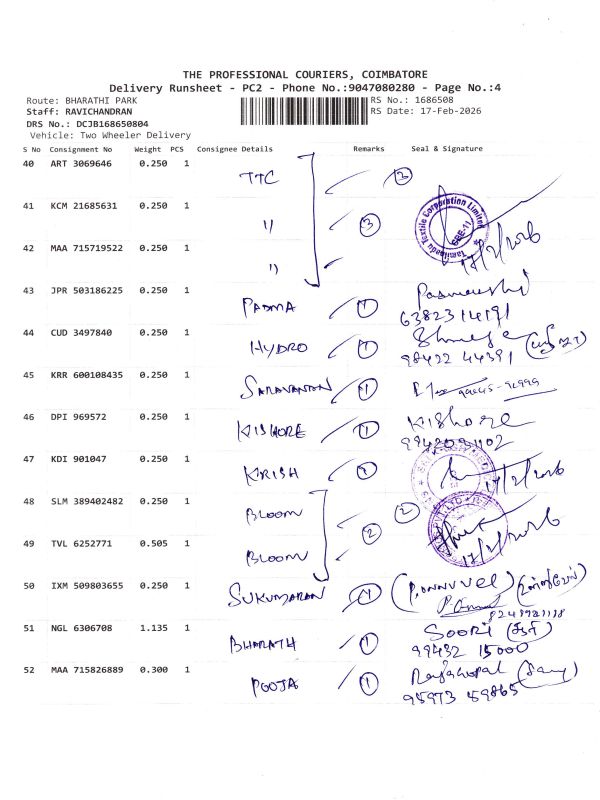 THE PROFESSIONAL COURIERS, COIMBATORE
Delivery Runsheet - PC2 - Phone No.:9047080280 - Page No.:4
Route: BHARATHI PARK RS No.: 1686508
Staff: RAVICHANDRAN RS Date: 17-Feb-2026
DRS No.: DCJB168650804
Vehicle: Two Wheeler Delivery
S No Consignment No Weight PCS Consignee Details Remarks Seal & Signature
40 ART 3069646 0.250 1 TTC 3
41 KCM 21685631 0.250 1 11 3 Tamilnadu Textile Corporation Limited
42 MAA 715719522 0.250 1 11 17/2/2026
43 JPR 503186225 0.250 1 PADMA 1
44 CUD 3497840 0.250 1 HYDRO 1 98422 44391
45 KRR 600108435 0.250 1 SARAVANAN 1
46 DPI 969572 0.250 1 KISHORE 1 Kishore
47 KDI 901047 0.250 1 KRISH 1 17/2/2026
48 SLM 389402482 0.250 1 BLOOM 2
49 TVL 6252771 0.505 1 BLOOM 2 17/2/2026
50 IXM 509803655 0.250 1 SUKUMARAN 1 (P.ONNUVEL)
51 NGL 6306708 1.135 1 BHARATH 1 SOORI
99432 15000
52 MAA 715826889 0.300 1 POOJA 1 Rajagopal
95973 59865